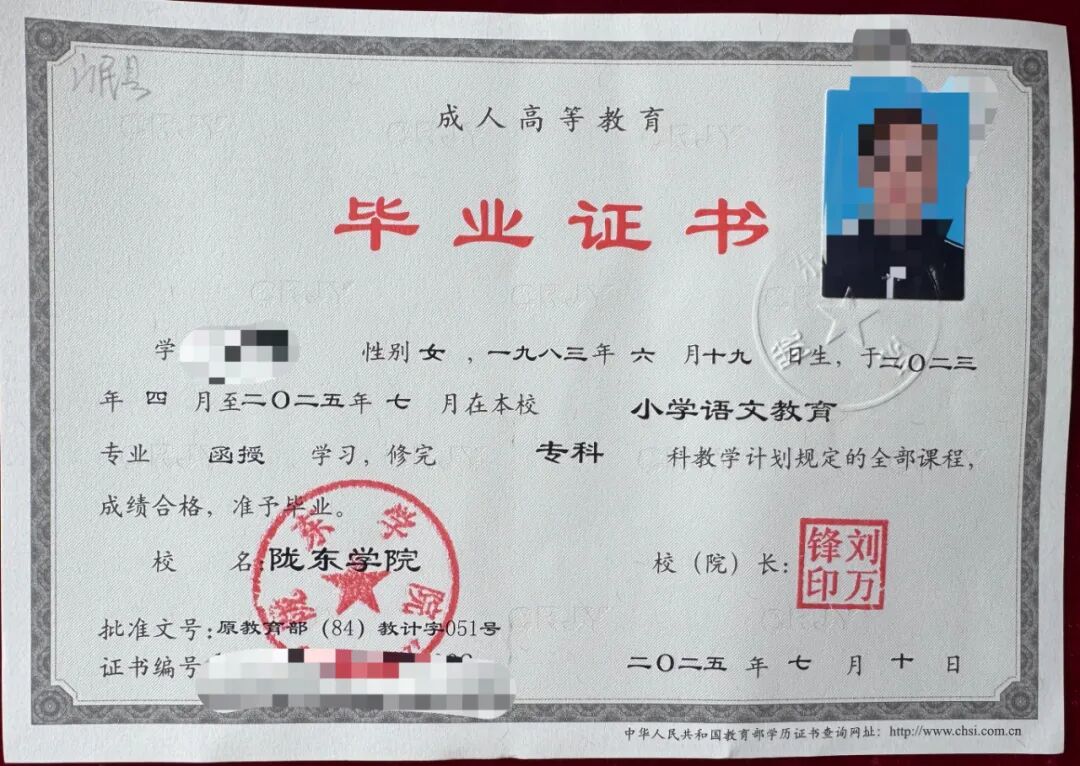 岷县
成人高等教育
毕业证书
学 性别 女 ，一九八三年 六 月十九 日生，于二〇二三
年 四 月至二〇二五年 七 月在本校 小学语文教育
专业 函授 学习，修完 专科 科教学计划规定的全部课程，
成绩合格，准予毕业。
校 名：陇东学院 校（院）长：
刘万锋印
批准文号：原教育部（84）教计字051号
证书编号
二〇二五 年 七 月 十 日
中华人民共和国教育部学历证书查询网址：http://www.chsi.com.cn
陇东学院
CRJY